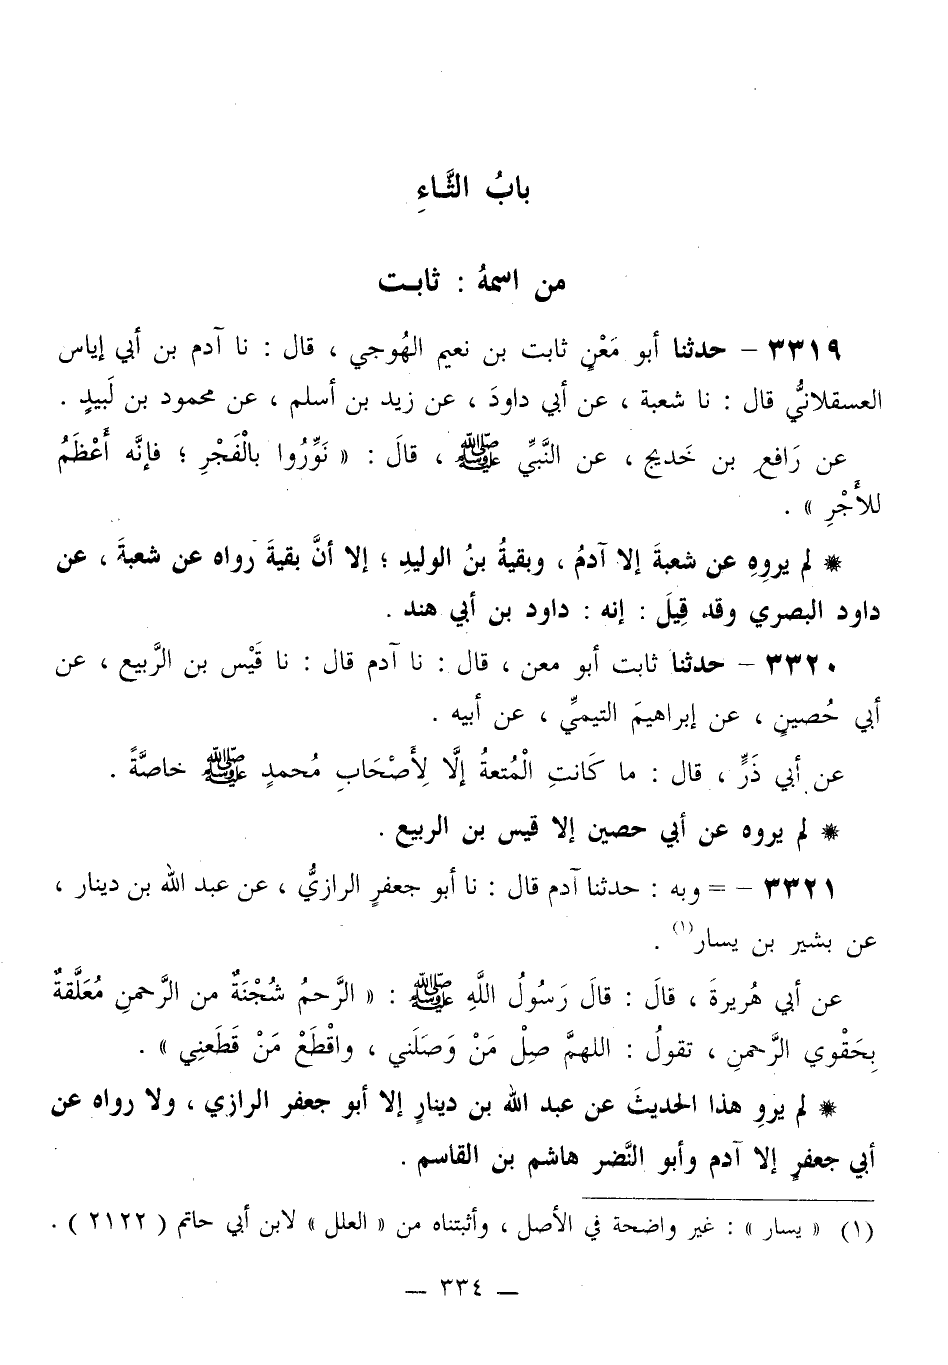 بابُ الثَّاءِ
من اسمهُ : ثابت
٣٣١٩ – حدثنا أبو مَعْنٍ ثابت بن نعيم الهُوجي ، قال : نا آدم بن أبي إياس
العسقلانيُّ قال : نا شعبة ، عن أبي داودَ ، عن زيد بن أسلم ، عن محمود بن لَبيدٍ .
عن رَافعِ بن خَديج ، عن النَّبيِّ ﷺ ، قالَ : « نَوِّرُوا بالْفَجْرِ ؛ فإنَّه أَعْظَمُ
للأَجْرِ » .
* لم يروِهِ عن شعبةَ إلا آدمُ ، وبقيةُ بنُ الوليدِ ؛ إلا أنَّ بقيةَ رواه عن شعبةَ ، عن
داود البصري وقد قِيلَ : إنه : داود بن أبي هند .
٣٣٢٠ – حدثنا ثابت أبو معن ، قال : نا آدم قال : نا قَيْس بن الرَّبيع ، عن
أبي حُصينٍ ، عن إبراهيمَ التيميِّ ، عن أبيه .
عن أبي ذَرٍّ ، قال : ما كَانتِ الْمُتعةُ إلَّا لِأَصْحَابِ مُحمدٍ ﷺ خاصَّةً .
* لم يروه عن أبي حصين إلا قيس بن الربيع .
٣٣٢١ – = وبه : حدثنا آدم قال : نا أبو جعفرٍ الرازيُّ ، عن عبد الله بن دينار ،
عن بشير بن يسار(١) .
عن أبي هُريرةَ ، قالَ : قالَ رَسُولُ اللَّهِ ﷺ : « الرَّحمُ شُجْنَةٌ من الرَّحمنِ مُعَلَّقةٌ
بِحَقْوي الرَّحمنِ ، تقولُ : اللهمَّ صِلْ مَنْ وَصَلَني ، واقْطَعْ مَنْ قَطَعنِي » .
* لم يروِ هذا الحديثَ عن عبد الله بن دينارٍ إلا أبو جعفر الرازي ، ولا رواه عن
أبي جعفرٍ إلا آدم وأبو النَّضر هاشم بن القاسم .
(١) « يسار » : غير واضحة في الأصل ، وأثبتناه من « العلل » لابن أبي حاتم ( ٢١٢٢ ) .
– ٣٣٤ –